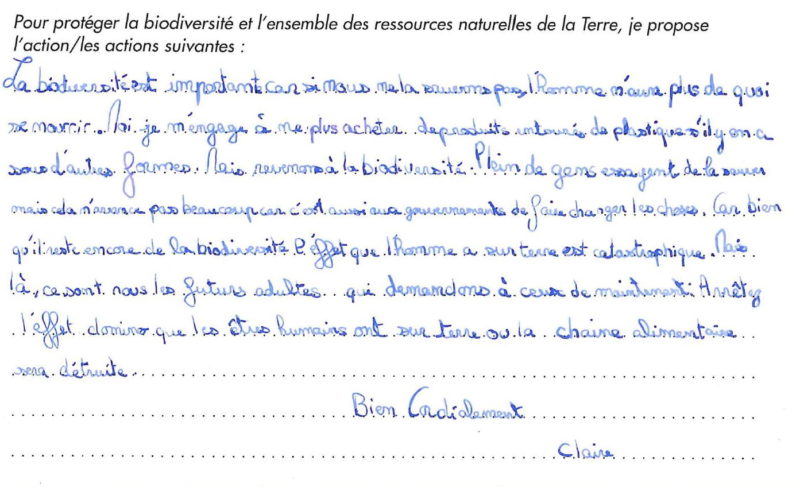 Pour protéger la biodiversité et l'ensemble des ressources naturelles de la Terre, je propose
l'action/les actions suivantes :
La biodiversité est importante car si nous ne la sauvons pas, l'homme n'aura plus de quoi
se nourrir. Moi je m'engage à ne plus acheter de produits entouré de plastique s'il y en a
sous d'autres formes. Mais revenons à la biodiversité. Plein de gens essayent de la sauver
mais cela n'avance pas beaucoup car c'est aussi aux gouvernements de faire changer les choses. Car bien
qu'il reste encore de la biodiversité l'éffet que l'homme a sur terre est catastrophique. Mais
là, ce sont nous les futurs adultes qui demandons à ceux de maintenant : Arrêtez
l'éffet domino que les êtres humains ont sur terre ou la chaine alimentaire
sera détruite.
Bien Cordialement
Claire